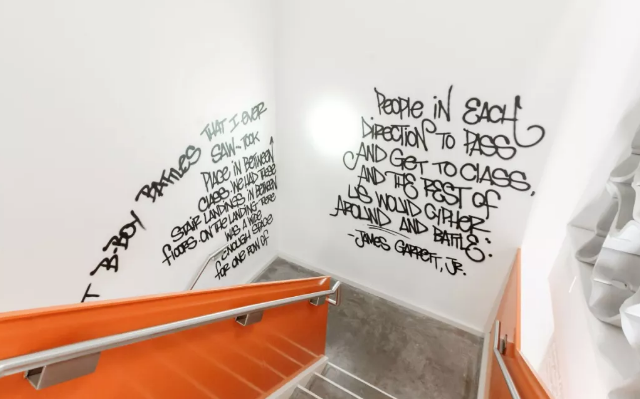 T B-BOY BATTLES THAT I EVER
SAW TOOK
PLACE IN BETWEEN
CLASS. WE HAD THESE
STAIR LANDINGS IN BETWEEN
FLOORS. ON THE LANDING THERE
WAS A WIDE
ENOUGH SPACE
FOR ONE ROW OF
PEOPLE IN EACH
DIRECTION TO PASS
AND GET TO CLASS,
AND THE REST OF
US WOULD CYPHER
AROUND AND BATTLE.
-JAMES GARRETT, JR.